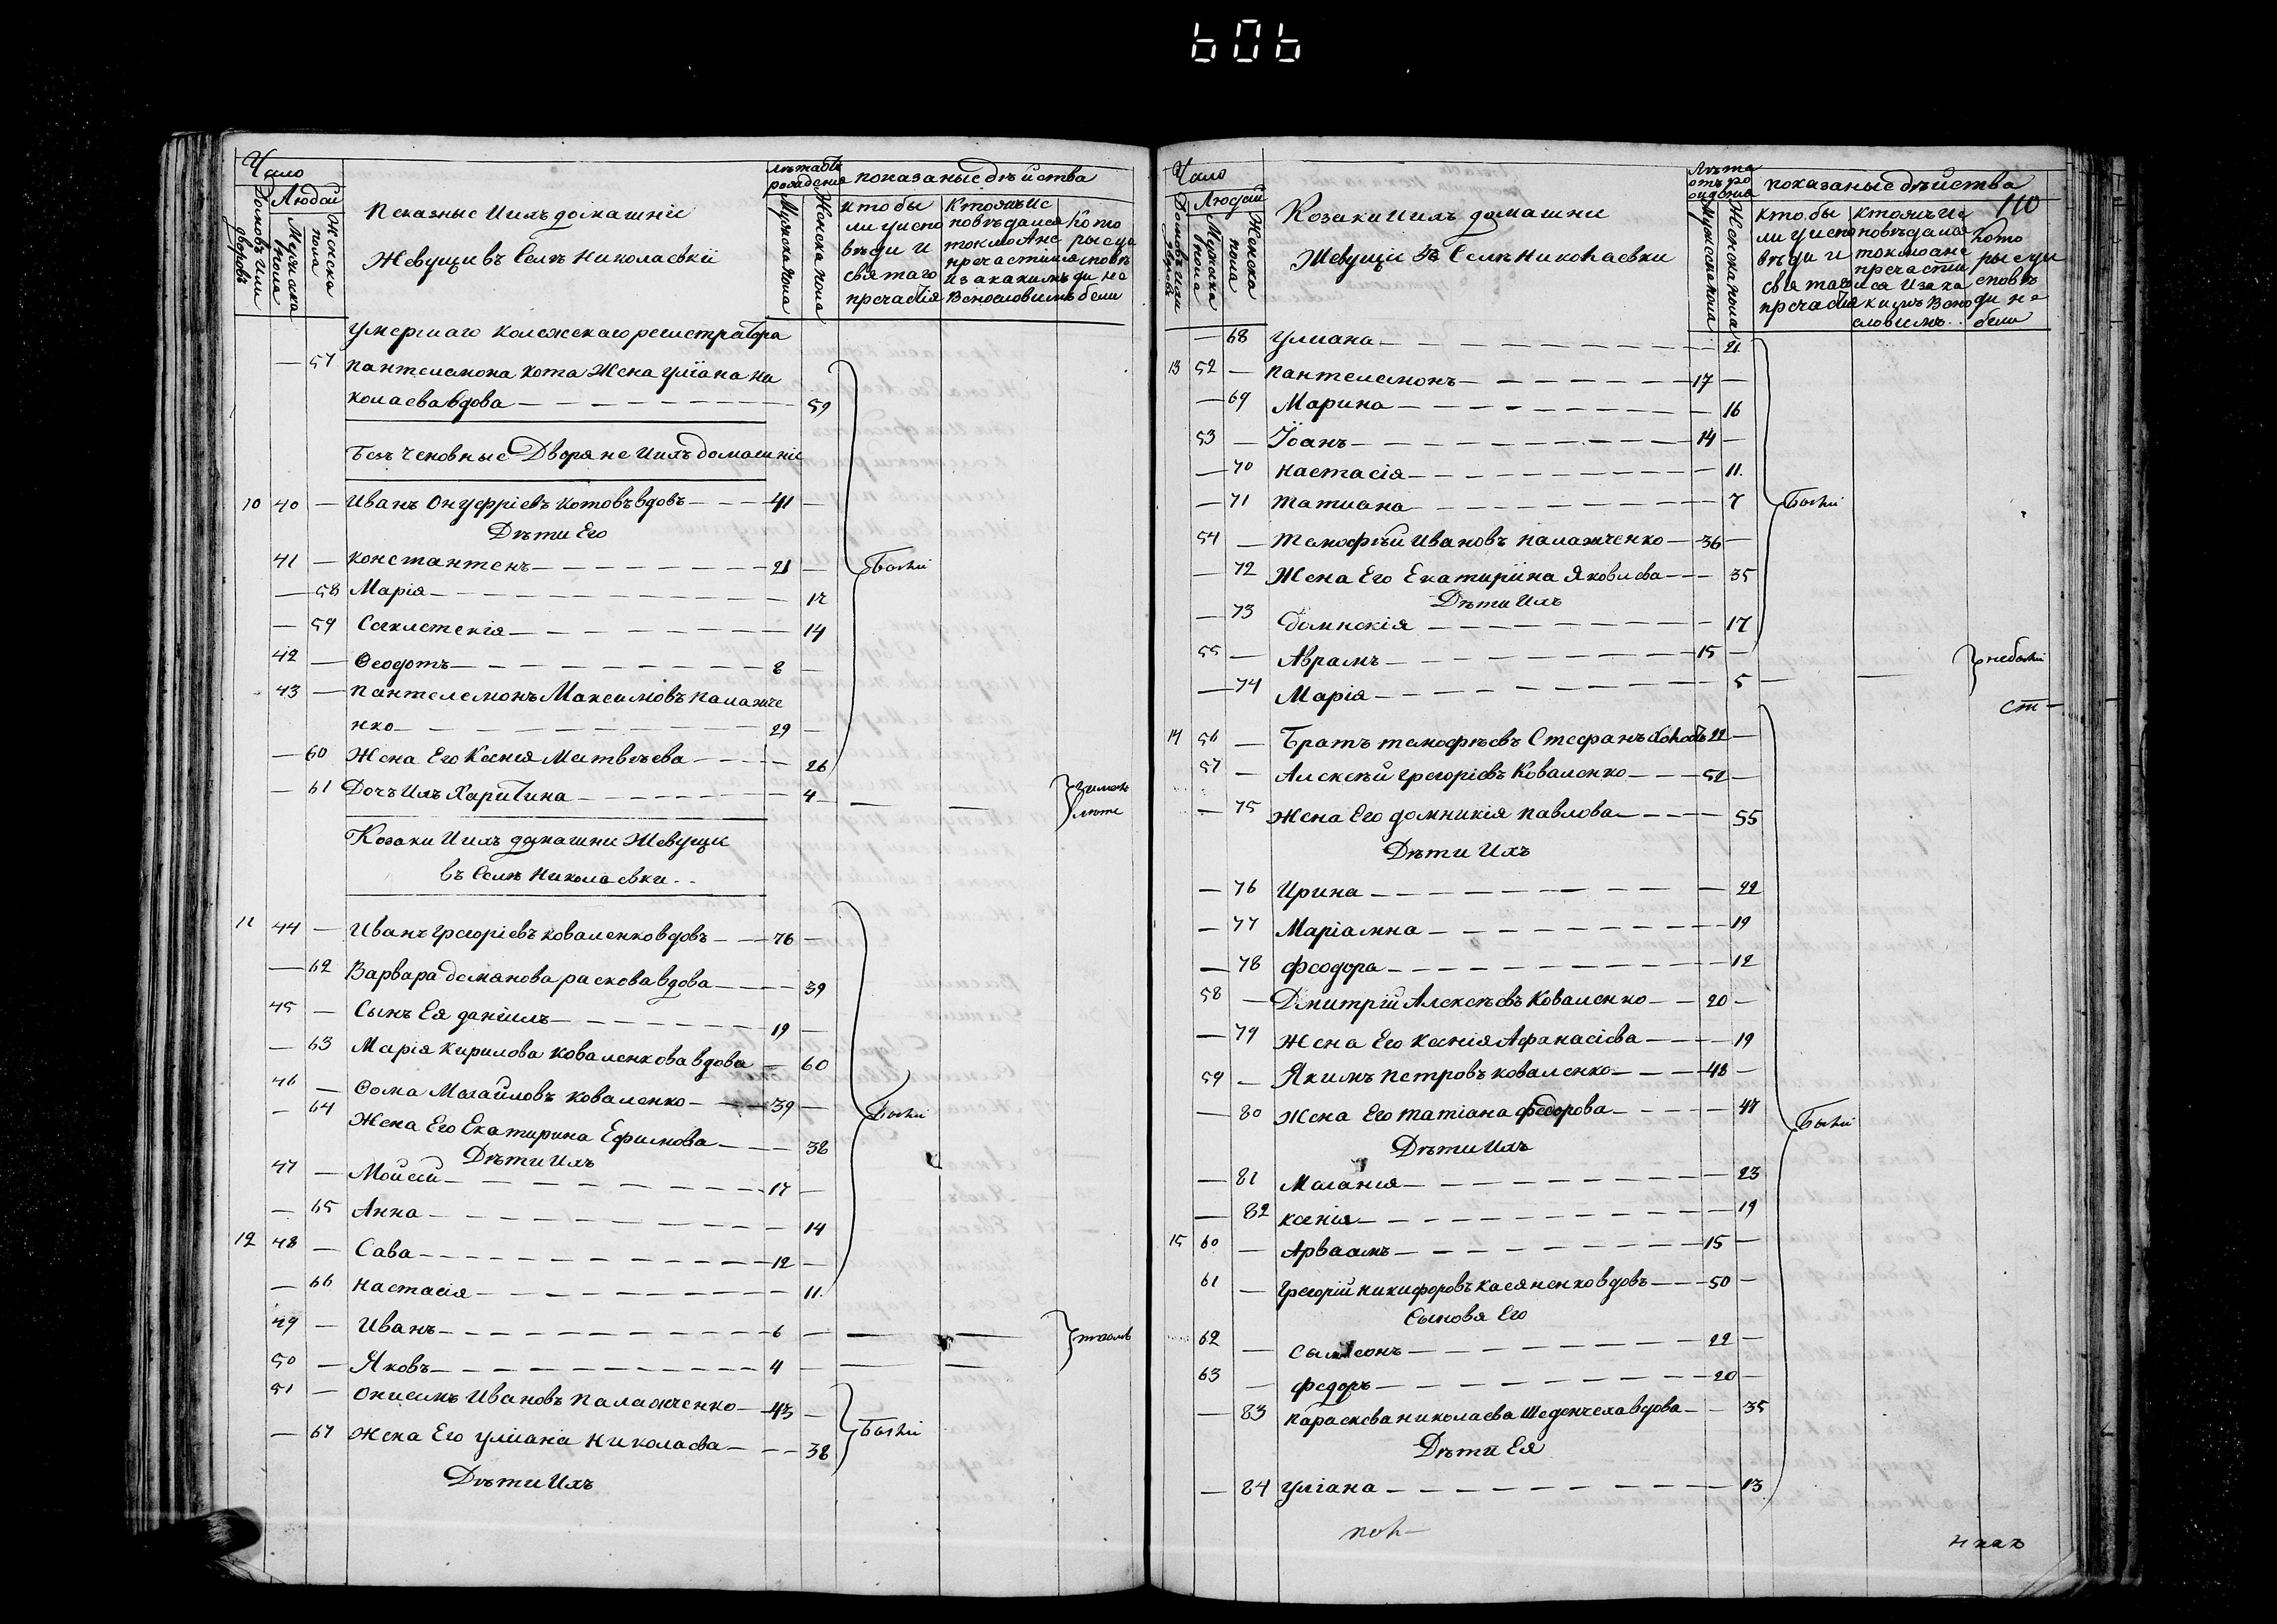 606
Число
Людей
Домовъ или дворовъ
Мужеска пола
Женска пола
Приказные и ихъ домашніи
Жевущи въ Селѣ Николаевкѣ
лѣта отъ рождения
Мужеска пола
Женска пола
показаные дѣйства
кто бы ли у исповѣди и святаго причастія
Кто жъ исповѣдался токмо а не причастился и за какимъ винословиемъ
кото рые у исповѣди не были
умершаго колежскаго регистратора
— 57 пантелемона кота Жена улїана ни
колаева вдова — 59
Безъ Чековные Дворяне и ихъ домашніе
10 40 — Иванъ Онуфріевъ котовъ вдовъ — 41 —
Дѣти Его
41 — Константенъ — 21 —
— 58 Марія — 17
— 59 Секлетекія — 14
42 — Ѳеодотъ — 8 —
43 — пантелемонъ Максимовъ палажче
нко — 29 —
— 60 Жена Его Ксенія Матвѣева — 26
Быхи
— 61 Дочъ Ихъ Харитина — 4 — —
Козаки И ихъ домашни Жевущи
въ Селѣ Николаевки
11 44 — Иванъ Григоріевъ коваленко вдовъ — 76 —
— 62 Варвара деманова раскова вдова — 39
45 — Сынъ Ея даніилъ — 19 —
— 63 Марія Кирилова коваленкова вдова — 60
46 — Ѳома Михайловъ коваленко — 39 —
— 64 Жена Его Екатирина Ефимова — 38
Дѣти Ихъ
47 — Мойсей — 17 —
— 65 Анна — 14
12 48 — Сава — 12 —
— 66 Настасія — 11
49 — Иванъ — 6 — — —
50 — Яковъ — 4 — — —
51 — Онисимъ Ивановъ палажченко — 43 —
— 67 Жена Его улиана Николаева — 38
Дѣти Ихъ
Число
Людей
Домовъ или дворовъ
Мужеска пола
Женска пола
Козаки и ихъ домашни
Жевущіе въ Селѣ Николаевки
Лѣта отъ рождения
Мужеска пола
Женска пола
показаные дѣйства
110
кто бы ли у исповѣди и святаго причастія
кто жъ исповѣдался токмо а не причастился и за какимъ винословиемъ
кото рые у исповѣди не были
— 68 Улиана — 21
13 52 — пантелемонъ — 17 —
— 69 Марина — 16
53 — Їоанъ — 14 —
— 70 Настасія — 11
— 71 Татиана — 7
54 — Тимофѣй Ивановъ палажченко — 36 —
— 72 Жена Его Екатирїина Яковлева — 35
Дѣти Ихъ
— 73 домнікія — 17
55 — Аврамъ — 15 —
— 74 Марія — 5 — —
14 56 — Братъ тимофѣевъ Стефанъ холостъ 22 —
57 — Алексѣй григоріевъ Коваленко — 52 —
— 75 Жена Его домникія павлова — 55
Дѣти Ихъ
— 76 Ирина — 22
— 77 Маріамна — 19
— 78 феодора — 12
58 — Дмитрій Алексѣевъ Коваленко — 20 —
— 79 Жена Его Ксенія Афанасіева — 19
59 — Якимъ петровъ коваленко — 48 —
— 80 Жена Его татіана федорова — 47
Дѣти Ихъ
— 81 Маланія — 23
— 82 ксенія — 19
15 60 — Арваамъ — 15 —
61 — григорій никифоровъ касяненко вдовъ — 50 —
Сыновя Его
62 — Сымеонъ — 22 —
63 — федоръ — 20 —
— 83 параскева николаева вдова — 35
Дѣти Ея
— 84 улїана — 13